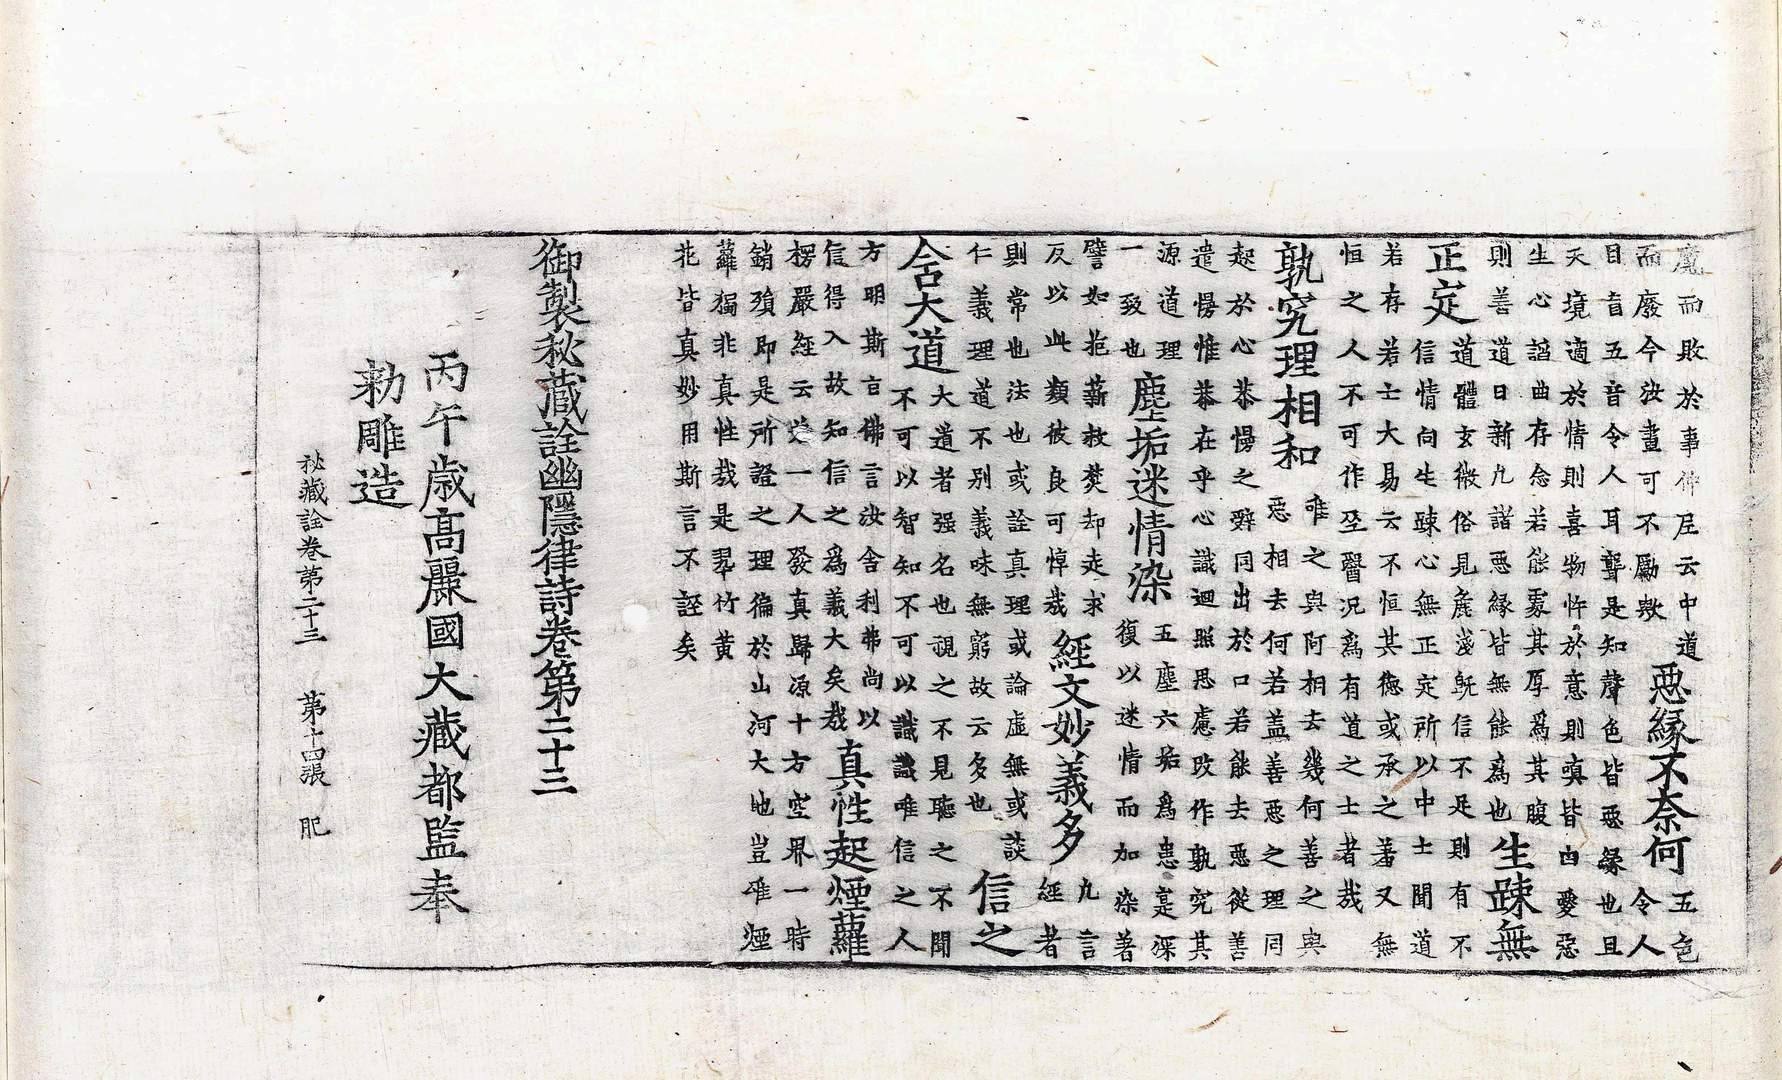 魔而敗於事仲尼云中道
而廢今汝畫可不勵歟
惡緣不奈何
五色
令人
目盲五音令人耳聾是知聲色皆惡緣也且
天境適於情則喜物忤於意則嗔皆由愛惡
生心諂曲存念若能處其厚爲其腹
則善道日新凡諸惡緣皆無能爲也
生踈無
正定
道體玄微俗見麁淺旣信不足則有不
信情向生踈心無正定所以中士聞道
若存若亡大易云不恒其德或承之著又無
恒之人不可作巫醫況爲有道之士者哉
孰究理相和
唯之與阿相去幾何善之與
惡相去何若盖善惡之理同
起於心恭慢之辭同出於口若能去惡從善
遣慢惟恭在乎心識迴照思慮改作孰究其
源道理
一致也
塵垢迷情染
五塵六垢爲患寔深
復以迷情而加染著
譬如抱薪救焚却走求
反以此類彼良可悼哉
經文妙義多
凡言
經者
則常也法也或詮真理或論虛無或談
仁義理道不別義味無窮故云多也
信之
含大道
大道者强名也視之不見聽之不聞
不可以智知不可以識識唯信之人
方明斯言佛言汝舍利弗尚以
信得入故知信之爲義大矣哉
真性起煙蘿
楞嚴經云一人發真歸源十方空界一時
銷殞即是所證之理徧於山河大地豈唯煙
蘿獨非真性哉是翠竹黃
花皆真妙用斯言不誣矣
御製秘藏詮幽隱律詩卷第二十三
丙午歲高麗國大藏都監奉
勅雕造
秘藏詮卷第二十三 第十四張 肥